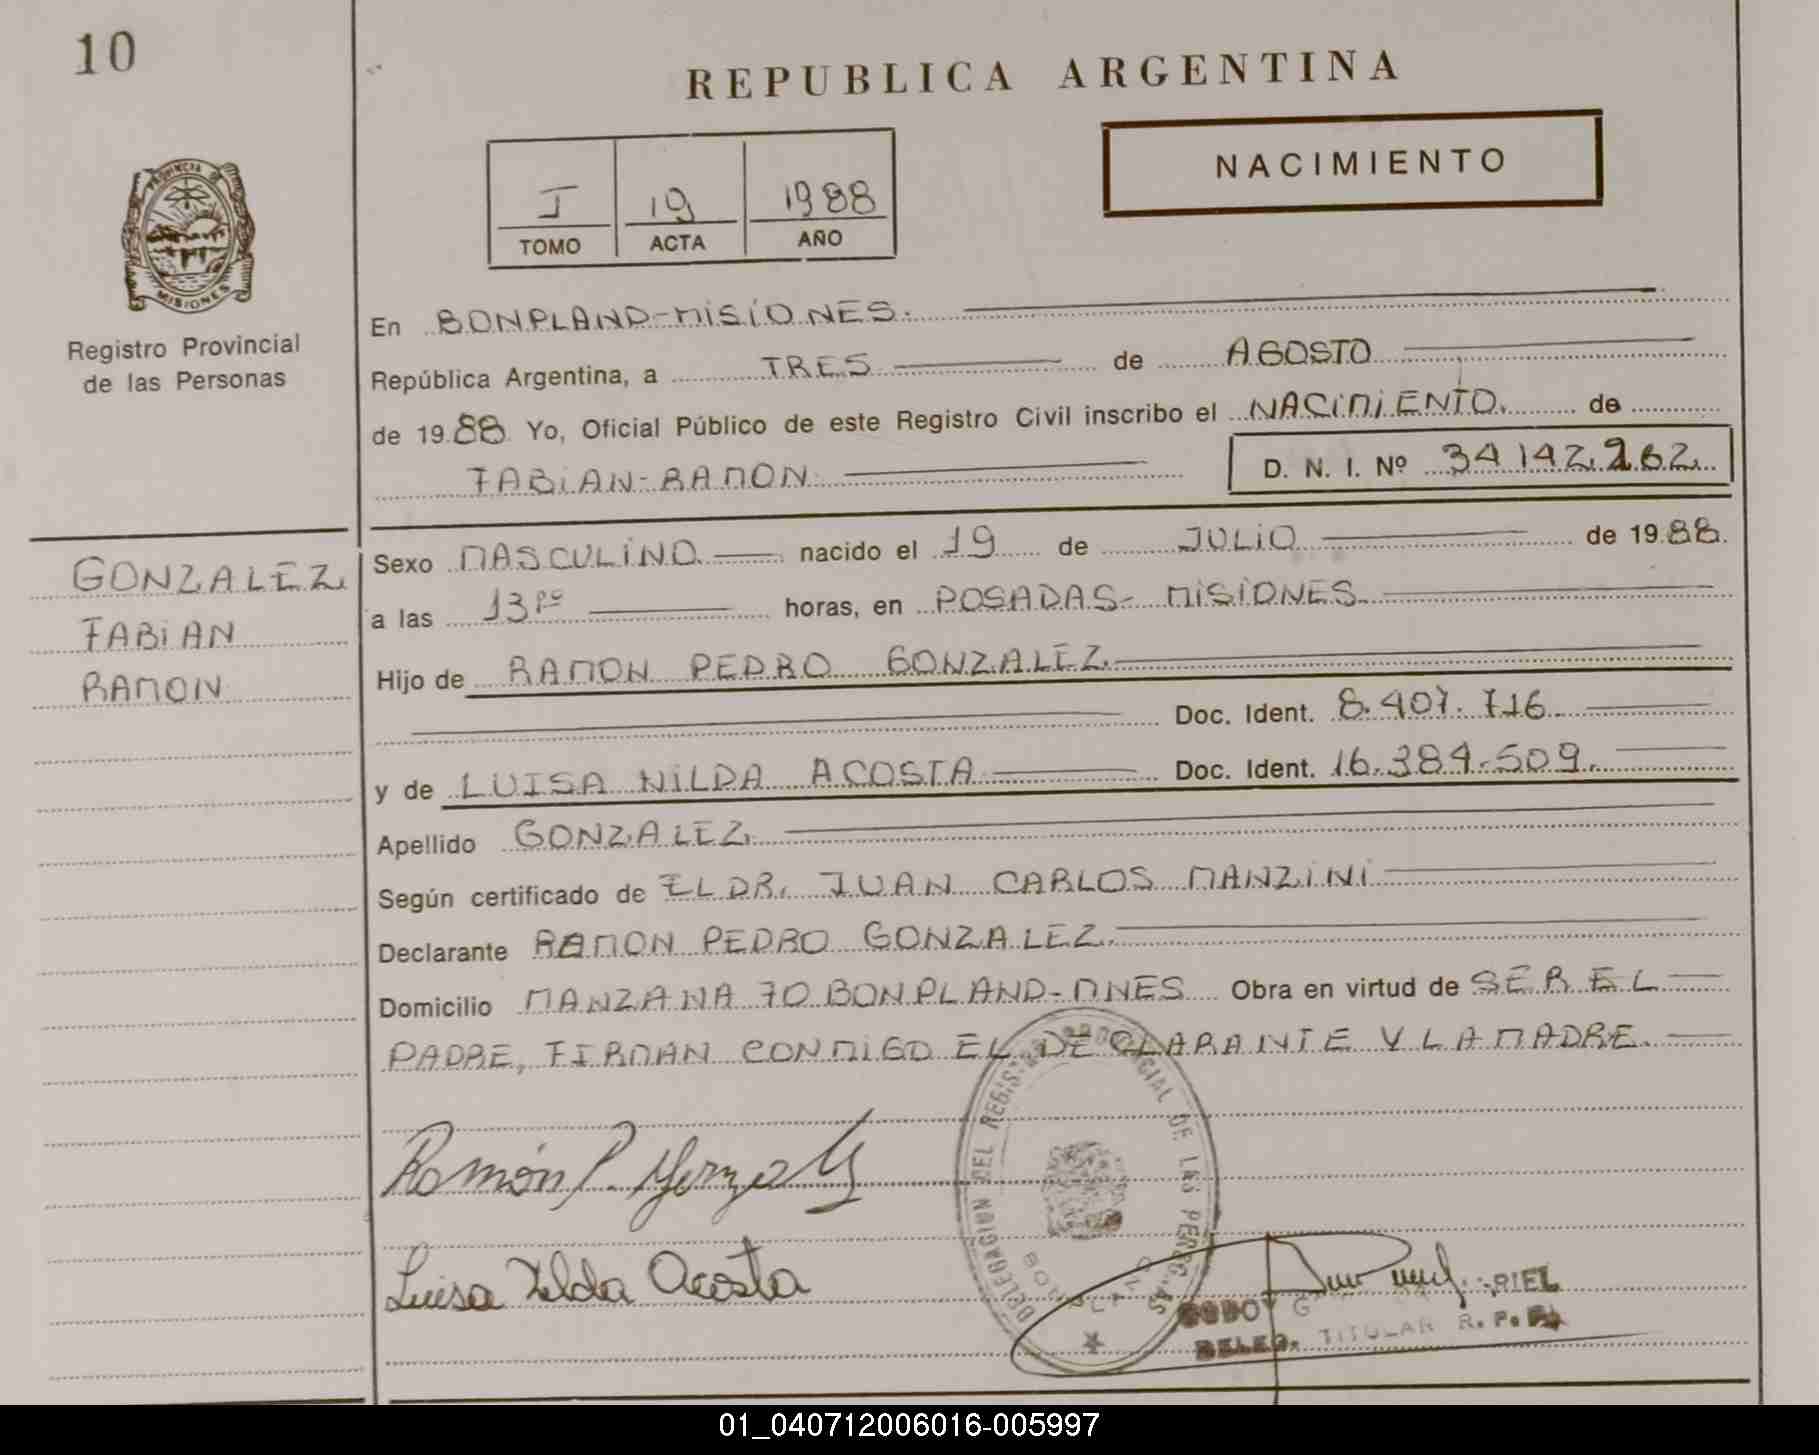 10
REPUBLICA ARGENTINA
NACIMIENTO
I 19 1988
TOMO ACTA AÑO
PROVINCIA D
MISIONES
Registro Provincial
de las Personas
En BONPLAND-MISIONES.
República Argentina, a TRES de AGOSTO
de 1988 Yo, Oficial Público de este Registro Civil inscribo el NACIMIENTO. de
FABIAN-RAMON D. N. I. Nº 34142.262.
GONZALEZ
FABIAN
RAMON
Sexo MASCULINO nacido el 19 de JULIO de 1988.
a las 13 horas, en POSADAS- MISIONES
Hijo de RAMON PEDRO GONZALEZ.
Doc. Ident. 8.407.716
y de LUISA NILDA ACOSTA Doc. Ident. 16.384.509.
Apellido GONZALEZ
Según certificado de EL DR. JUAN CARLOS MANZINI
Declarante RAMON PEDRO GONZALEZ.
Domicilio MANZANA 70 BONPLAND-MNES Obra en virtud de SER EL
PADRE, FIRMAN CONMIGO EL DECLARANTE Y LA MADRE.
Ramón P. Gonzalez
Luisa Nilda Acosta
DELEGACION DEL REGISTRO PROVINCIAL DE LAS PERSONAS
BONPLAND
GODOY G RIEL
DELEG. TITULAR R. P. P.
01_040712006016-005997